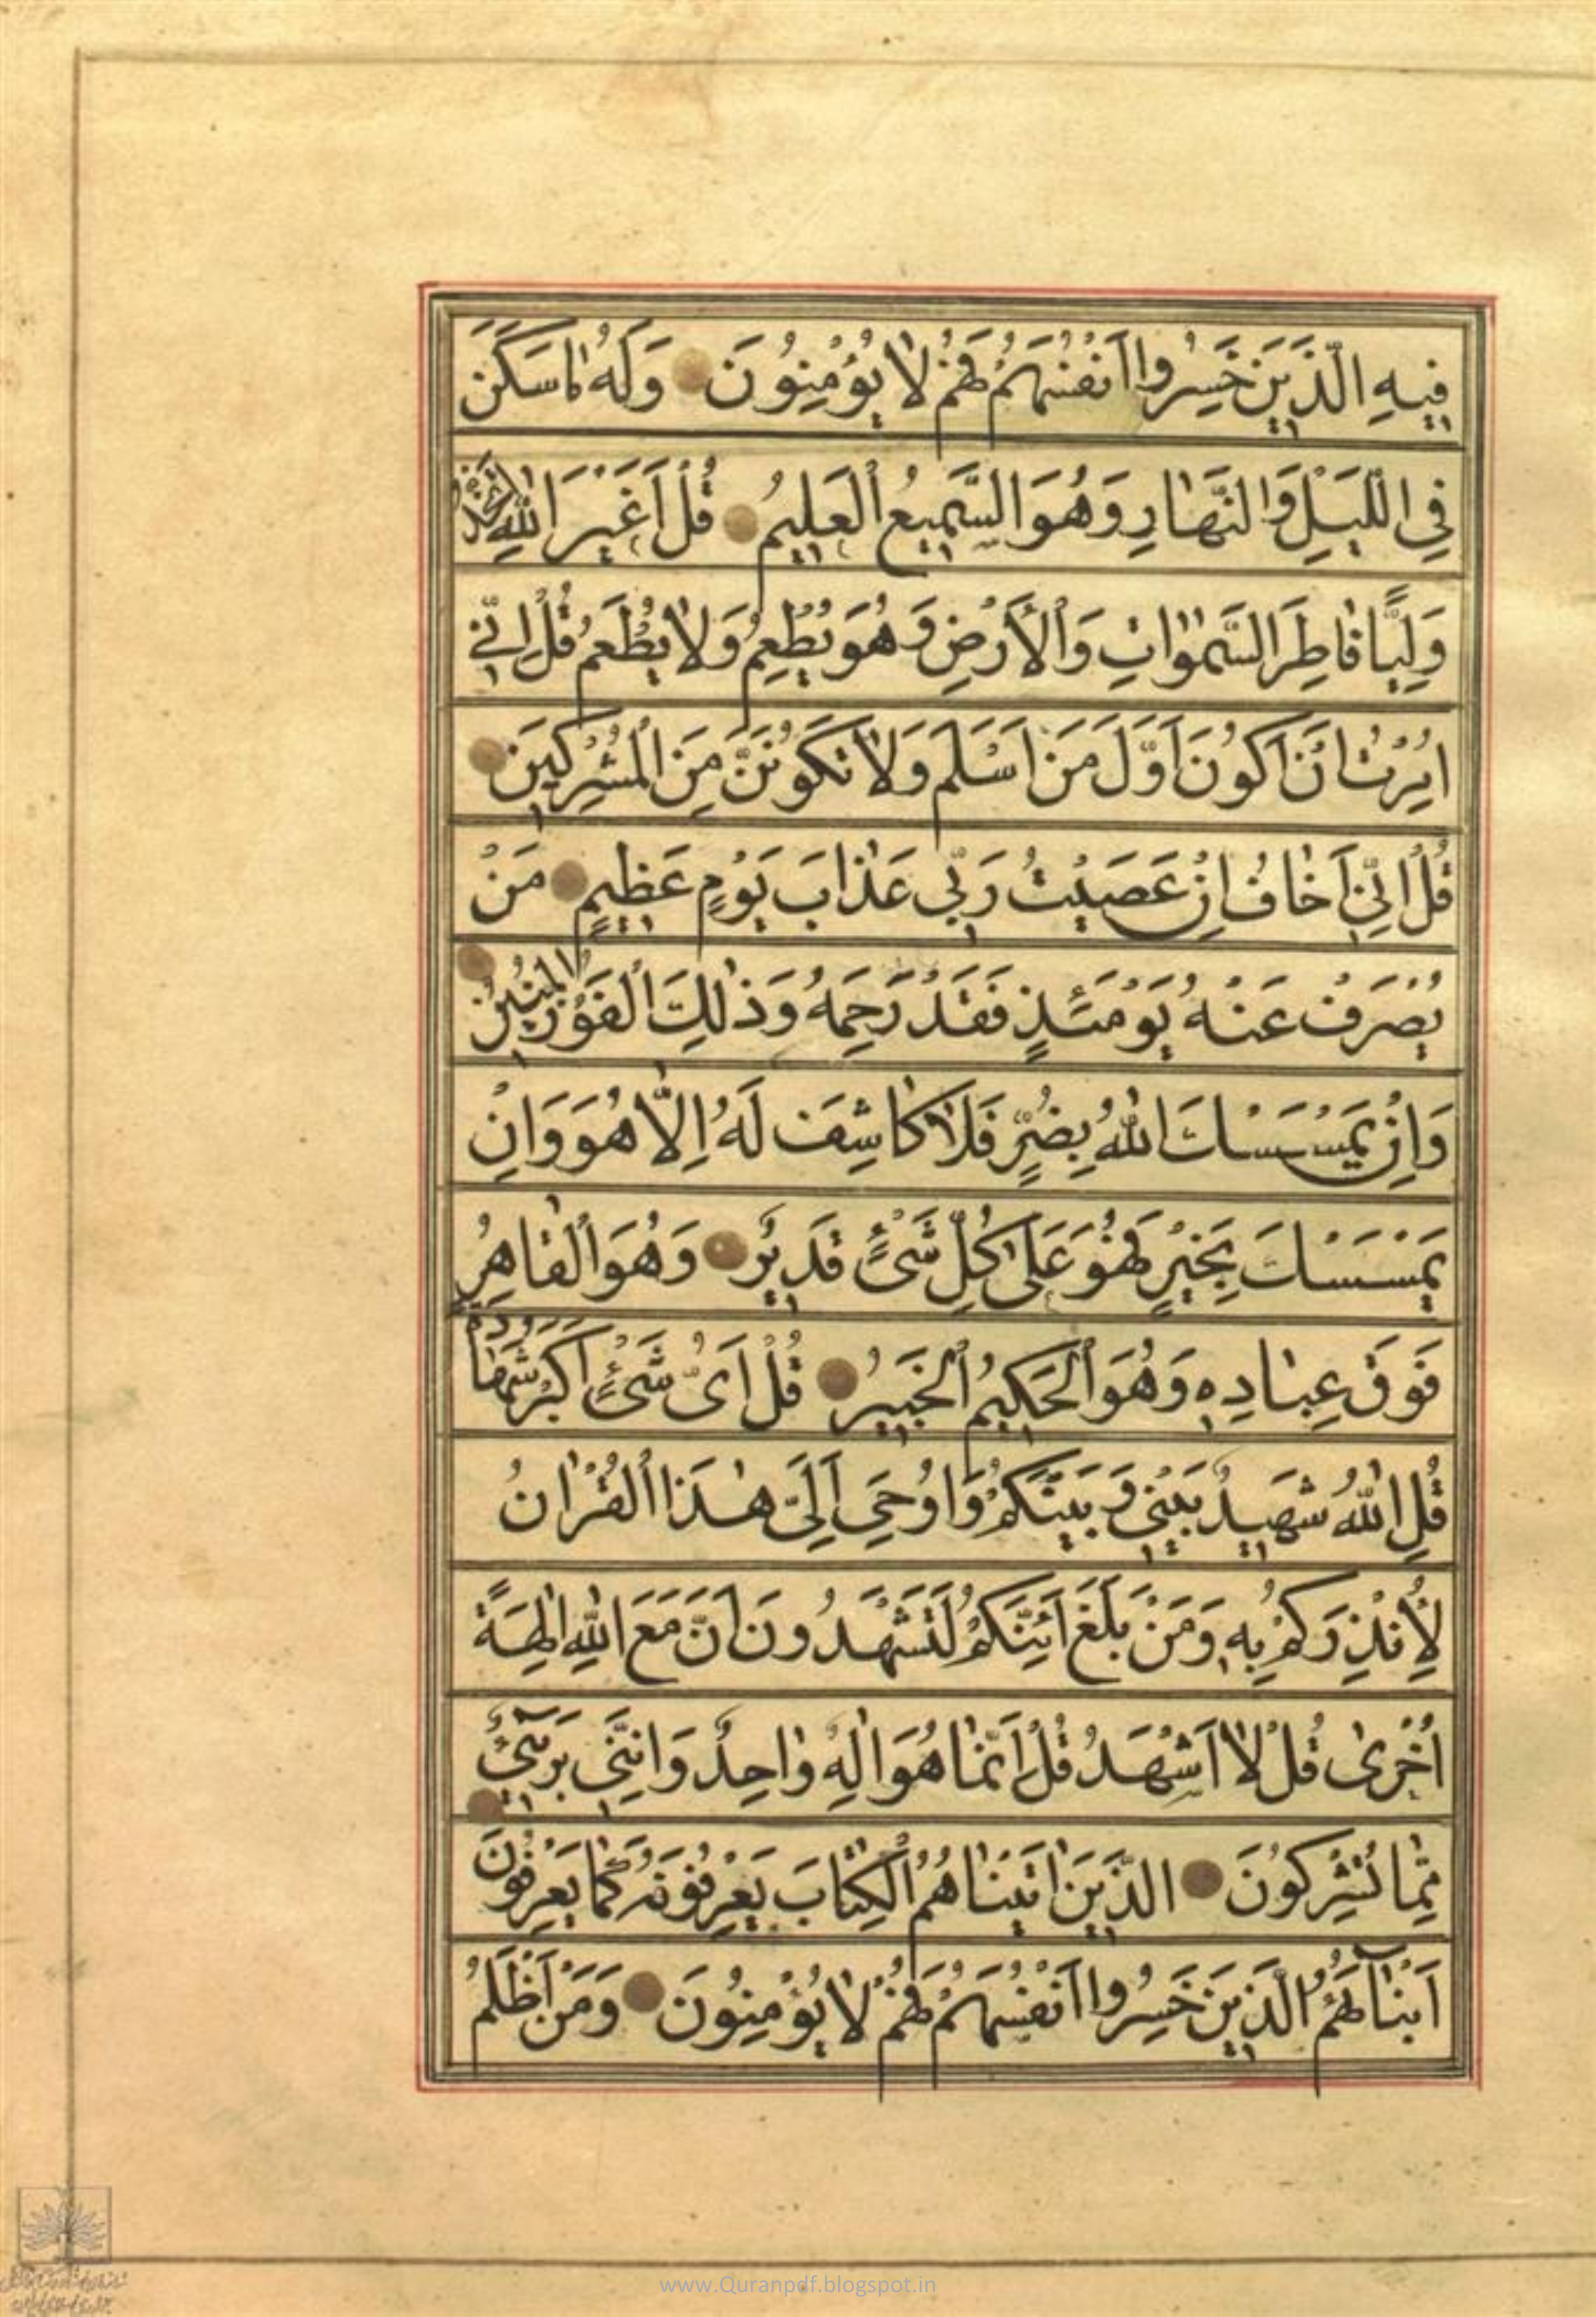 فِيهِ الَّذِينَ خَسِرُوا اَنْفُسَهُمْ فَهُمْ لَا يُؤْمِنُونَ وَلَهُ مَا سَكَنَ
فِي اللَّيْلِ وَالنَّهَارِ وَهُوَ السَّمِيعُ الْعَلِيمُ قُلْ اَغَيْرَ اللهِ اَتَّخِذُ
وَلِيًّا فَاطِرِ السَّمٰوَاتِ وَالْأَرْضِ وَهُوَ يُطْعِمُ وَلَا يُطْعَمُ قُلْ اِنِّي
اُمِرْتُ اَنْ اَكُونَ اَوَّلَ مَنْ اَسْلَمَ وَلَا تَكُونَنَّ مِنَ الْمُشْرِكِينَ
قُلْ اِنِّي اَخَافُ اِنْ عَصَيْتُ رَبِّي عَذَابَ يَوْمٍ عَظِيمٍ مَنْ
يُصْرَفْ عَنْهُ يَوْمَئِذٍ فَقَدْ رَحِمَهُ وَذٰلِكَ الْفَوْزُ الْمُبِينُ
وَاِنْ يَمْسَسْكَ اللهُ بِضُرٍّ فَلَا كَاشِفَ لَهُ اِلَّا هُوَ وَاِنْ
يَمْسَسْكَ بِخَيْرٍ فَهُوَ عَلٰى كُلِّ شَيْءٍ قَدِيرٌ وَهُوَ الْقَاهِرُ
فَوْقَ عِبَادِهِ وَهُوَ الْحَكِيمُ الْخَبِيرُ قُلْ اَيُّ شَيْءٍ اَكْبَرُ شَهَادَةً
قُلِ اللهُ شَهِيدٌ بَيْنِي وَبَيْنَكُمْ وَاُوحِيَ اِلَيَّ هٰذَا الْقُرْاٰنُ
لِأُنْذِرَكُمْ بِهِ وَمَنْ بَلَغَ اَئِنَّكُمْ لَتَشْهَدُونَ اَنَّ مَعَ اللهِ اٰلِهَةً
اُخْرٰى قُلْ لَا اَشْهَدُ قُلْ اِنَّمَا هُوَ اِلٰهٌ وَاحِدٌ وَاِنَّنِي بَرِيءٌ
مِمَّا تُشْرِكُونَ الَّذِينَ اٰتَيْنَاهُمُ الْكِتَابَ يَعْرِفُونَهُ كَمَا يَعْرِفُونَ
اَبْنَاءَهُمُ الَّذِينَ خَسِرُوا اَنْفُسَهُمْ فَهُمْ لَا يُؤْمِنُونَ وَمَنْ اَظْلَمُ
www.Quranpdf.blogspot.in